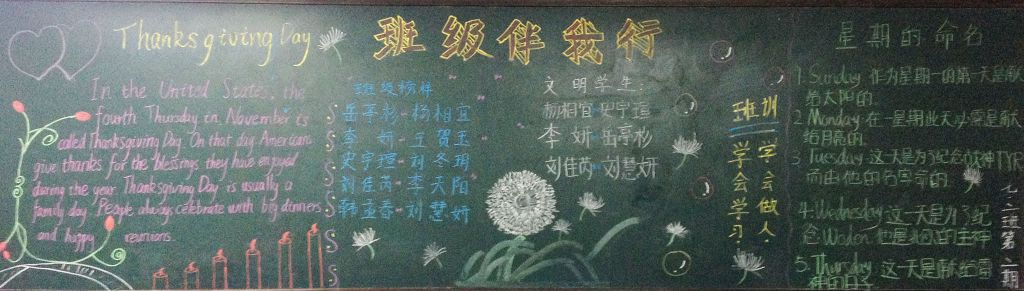 Thanksgiving Day
In the United States, the
fourth Thursday in November is
called Thanksgiving Day. On that day, Americans
give thanks for the blessings they have enjoyed
during the year. Thanksgiving Day is usually a
family day. People always celebrate with big dinners
and happy reunions.
班级伴我行
班级榜样
岳亭杉-杨相宜
李妍-王贺玉
史宇瑄-刘冬明
刘佳芮-李天阳
韩孟春-刘慧妍
文明学生:
杨相宜 史宇瑄
李妍-岳亭杉
刘佳芮-刘慧妍
班训
学会做人
学会学习
星期的命名
1. Sunday 作为星期一的第一天是献
给太阳的.
2 Monday 在一星期此天必需是献
给月亮的.
3 Tuesday 这一天是为了纪念战神TYR
而由他的名字命的.
4. Wednesday 这一天是为了纪
念Woden. 他是北欧的主神
5. Thursday 这一天是献给雷
神的日子
九二班第二期